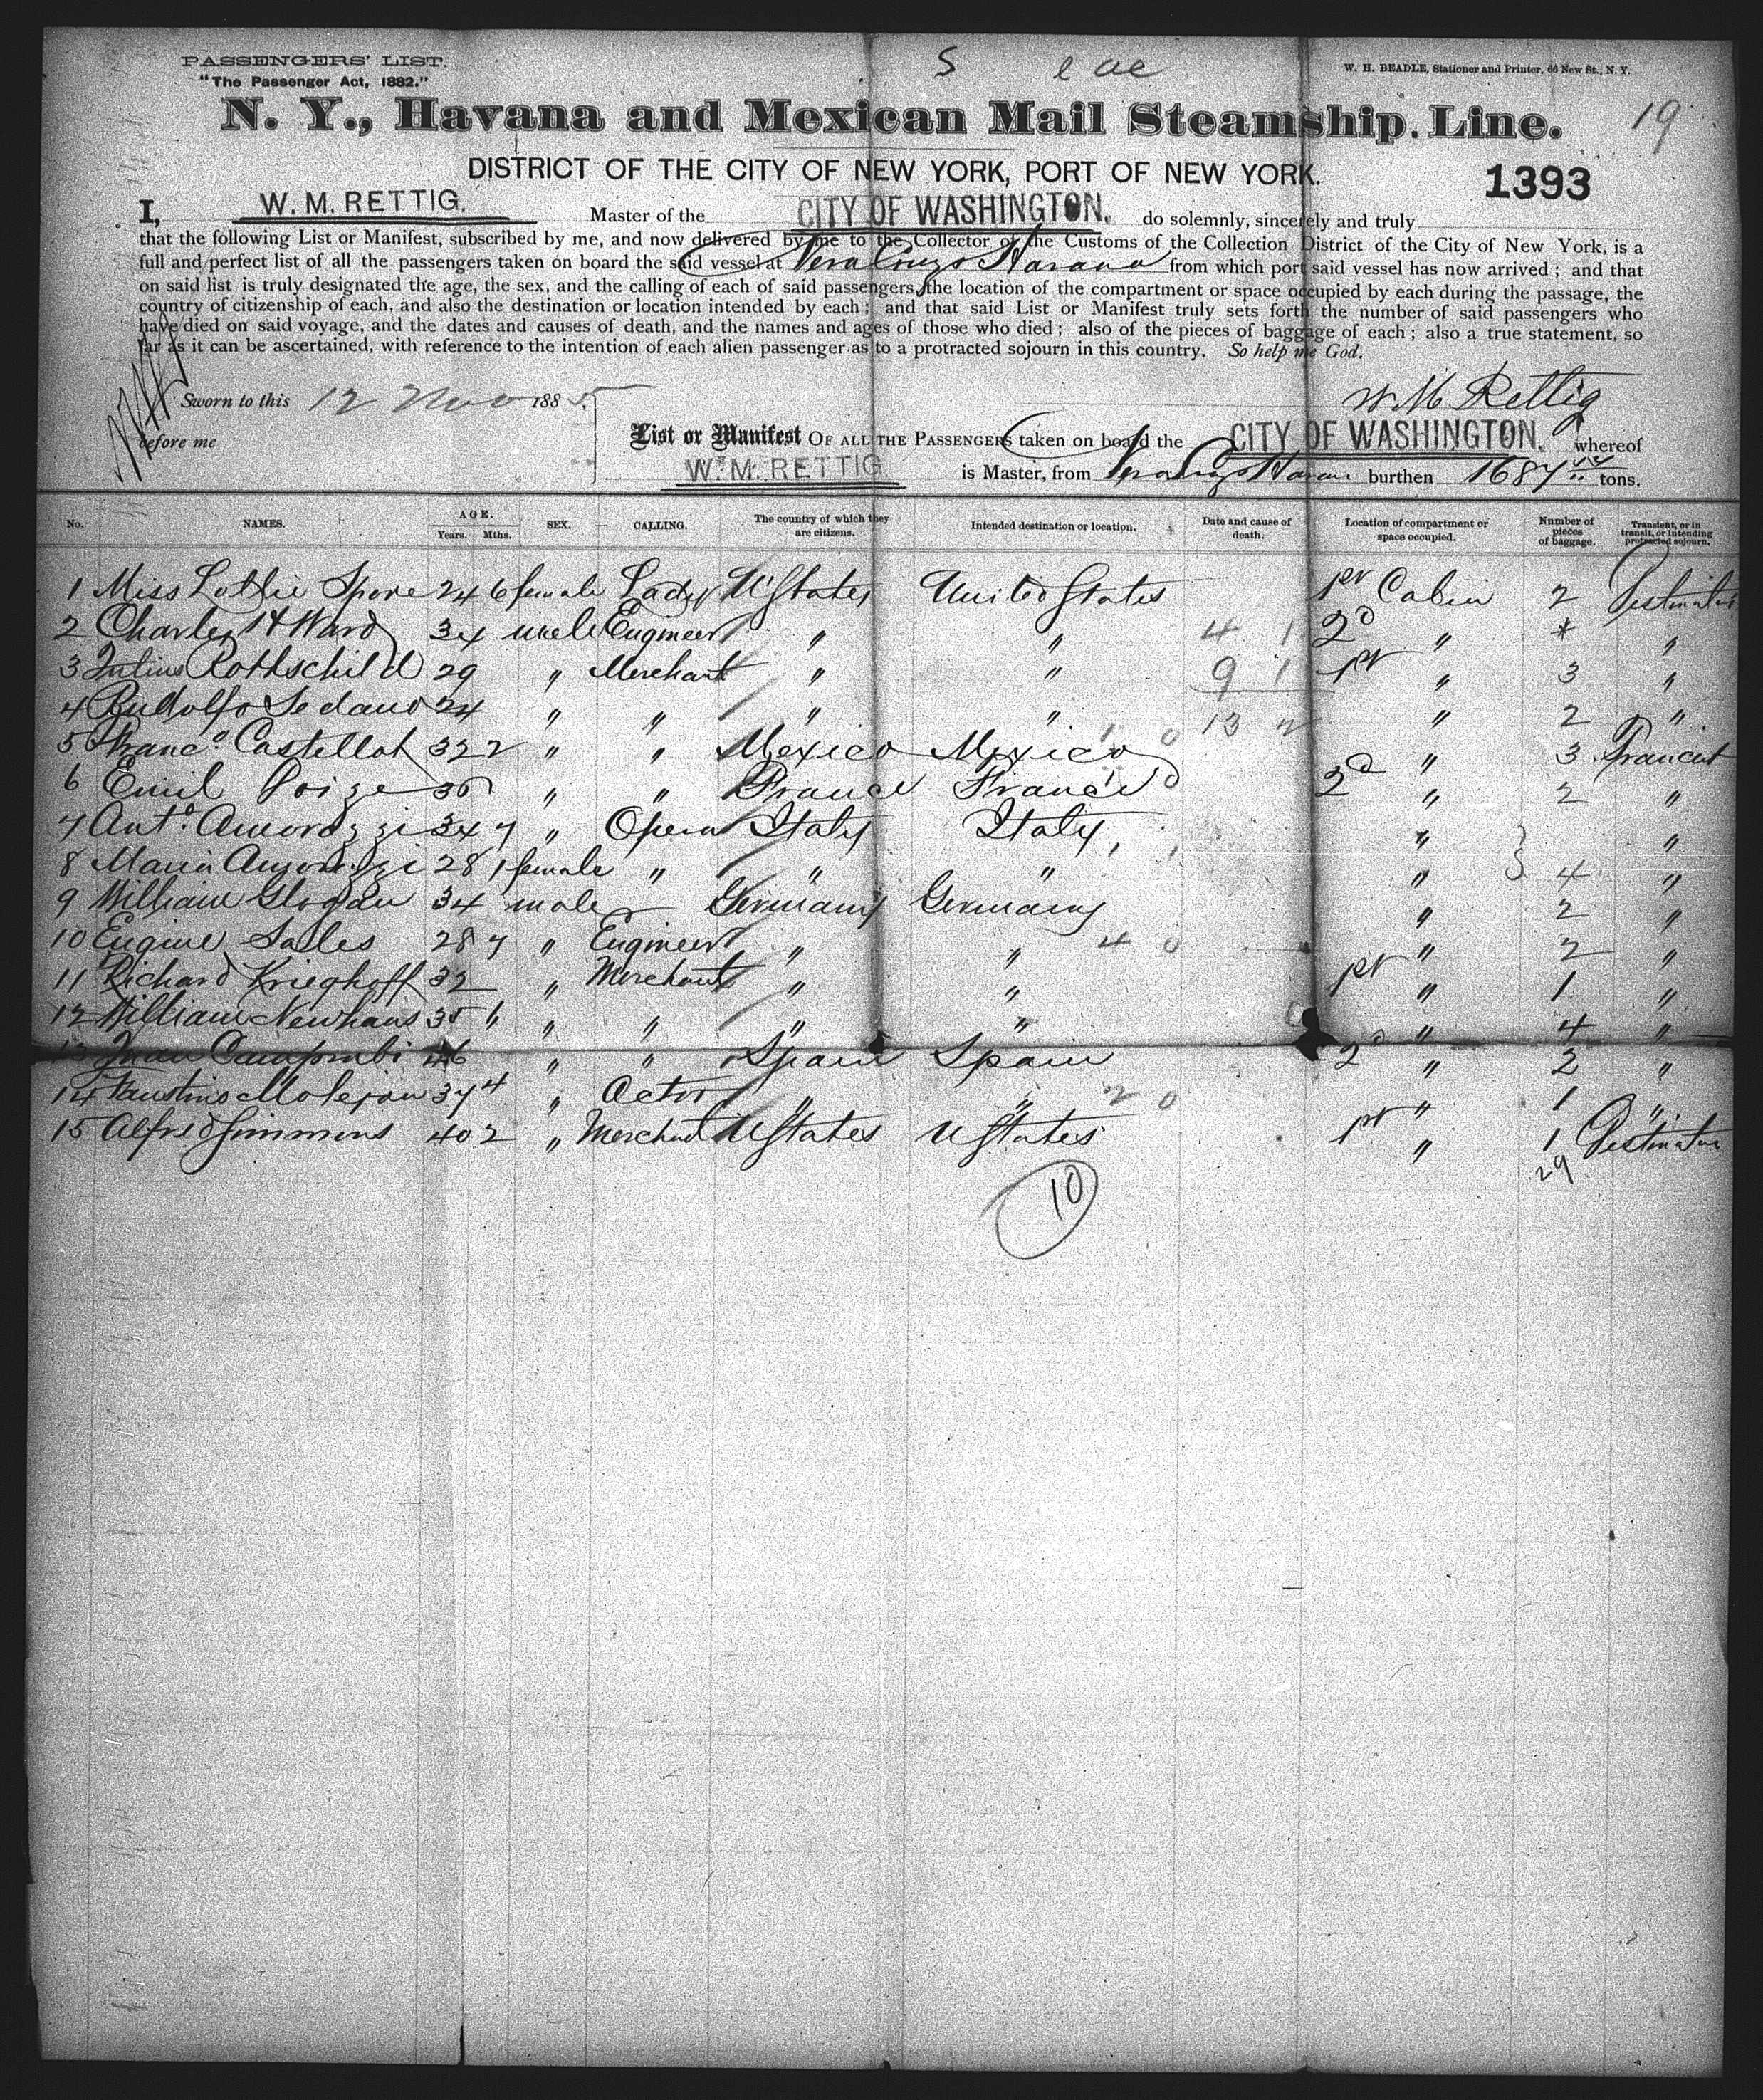 S eae
PASSENGERS' LIST.
"The Passenger Act, 1882."
W. H. BEADLE, Stationer and Printer, 66 New St., N. Y.
N. Y., Havana and Mexican Mail Steamship Line.
19
DISTRICT OF THE CITY OF NEW YORK, PORT OF NEW YORK.
1393
I, W. M. RETTIG. Master of the CITY OF WASHINGTON. do solemnly, sincerely and truly
that the following List or Manifest, subscribed by me, and now delivered by me to the Collector of the Customs of the Collection District of the City of New York, is a
full and perfect list of all the passengers taken on board the said vessel at Vera Cruz & Havana from which port said vessel has now arrived; and that
on said list is truly designated the age, the sex, and the calling of each of said passengers, the location of the compartment or space occupied by each during the passage, the
country of citizenship of each, and also the destination or location intended by each; and that said List or Manifest truly sets forth the number of said passengers who
have died on said voyage, and the dates and causes of death, and the names and ages of those who died; also of the pieces of baggage of each; also a true statement, so
far as it can be ascertained, with reference to the intention of each alien passenger as to a protracted sojourn in this country. So help me God.
Sworn to this 12 Nov 1885
W M Rettig
before me
List or Manifest OF ALL THE PASSENGERS taken on board the CITY OF WASHINGTON. whereof
W. M. RETTIG is Master, from Vera Cruz & Havana burthen 1687 tons.
No. NAMES. AGE. Years. Mths. SEX. CALLING. The country of which they are citizens. Intended destination or location. Date and cause of death. Location of compartment or space occupied. Number of pieces of baggage. Transient, or in transit, or intending protracted sojourn.
1 Miss Lottie Spore 24 6 female Lady U States United States 1st Cabin 2
2 Charles H Ward 34 male Engineer " " 4 1 2d " * "
3 Julius Rothschild 29 " Merchant " " 9 1 1st " 3 "
4 Rudolfo Sedano 24 " " " " 13 2 " 2 "
5 Franco. Castellot 32 2 " " Mexico Mexico " 3 Trancit
6 Emil 36 " " France France 2d " 2 "
7 Anto. Amorozzi 34 7 " Opera Italy Italy " "
8 Maria Amorozzi 28 1 female " " " " 4 "
9 William Glogau 34 male Germany Germany " 2 "
10 Eugine Salles 28 7 " Engineer " " 4 0 " 2 "
11 Richard Krieghoff 32 " Merchant " " 1st " 1 "
12 William Newhaus 35 6 " " " " " 4 "
13 Juan 46 " " Spain Spain 2d " 2 "
14 Faustino Molejon 37 4 " Actor " " 2 0 " 1 "
15 Alfred Simmons 40 2 " Merchant U States U States 1st " 1
29
10